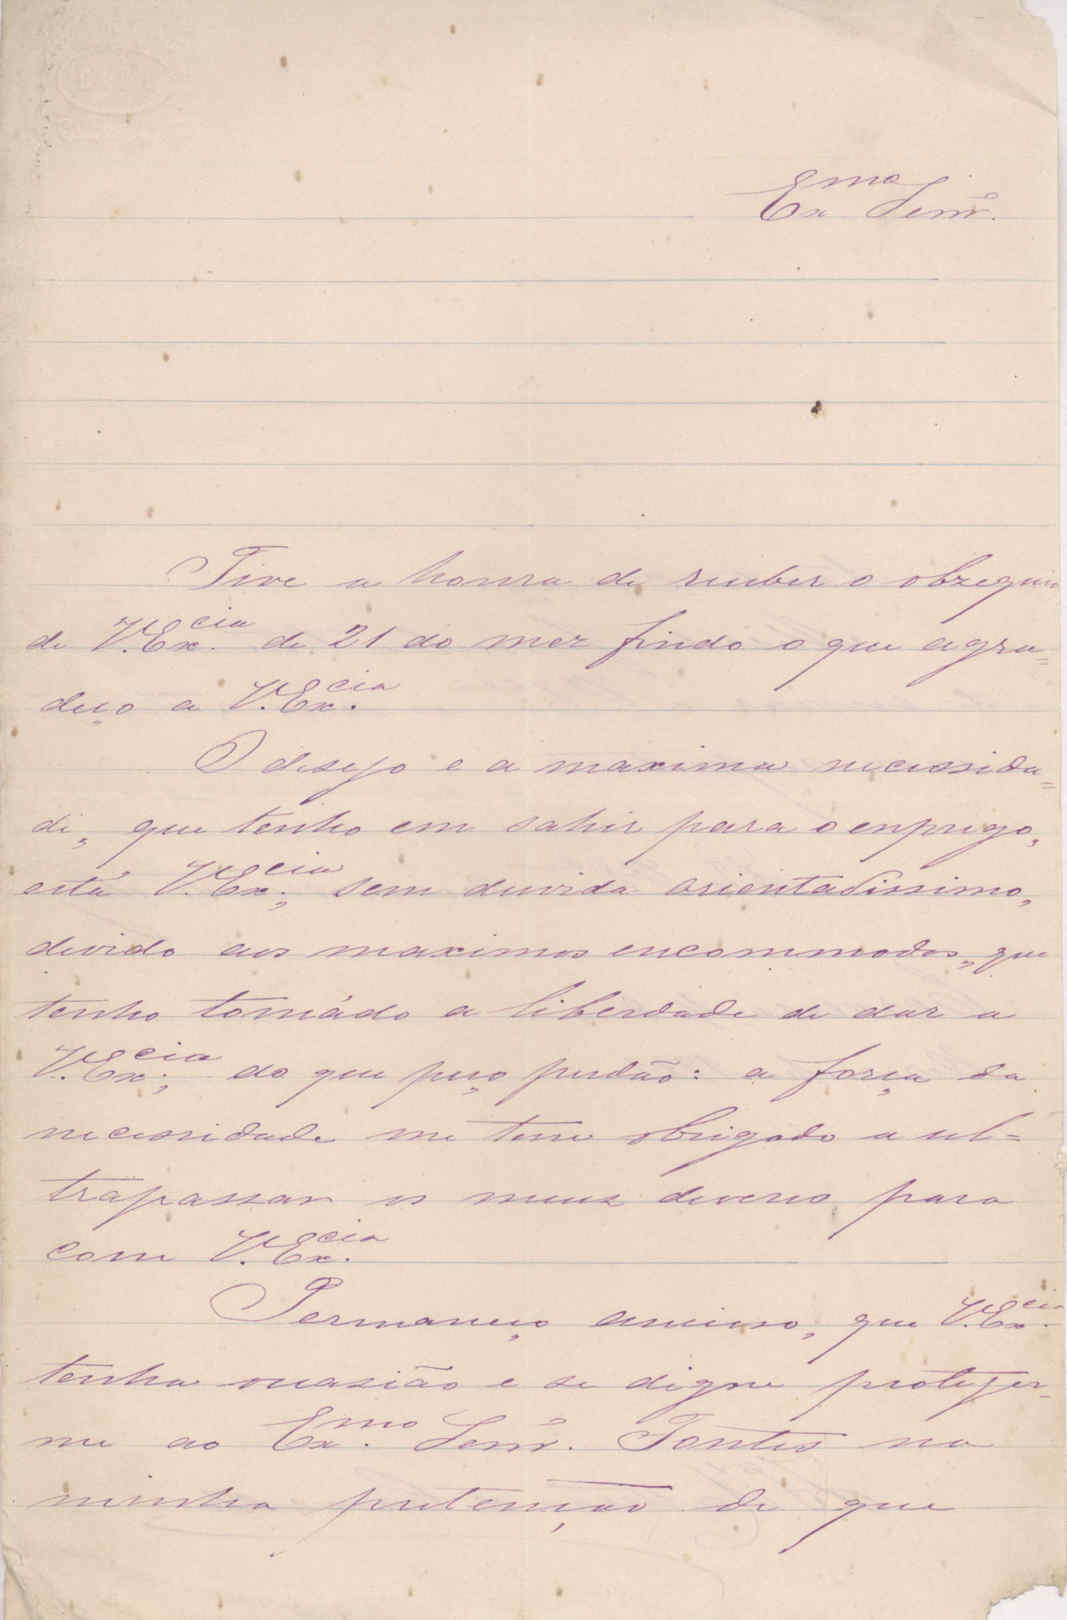 Ex.mo Senr.
Tive a honra de reseber o obzequio
de V.Ex.cia de 21 do mez findo o que agra=
deço a V.Ex.cia
O desejo e a maxima necessida=
de, que tenho em sahir para o enprego,
está V.Ex.cia, sem duvida orientadissimo,
devido aos maximos encommodos, que
tenho tomádo a liberdade de dar a
V.Ex.cia, do que peço perdão: a força da
necessidade me tem obrigado a ul=
trapassar os meus deveres para
com V.Ex.cia
Permaneço ancioso, que V.Ex.cia
tenha ocasião e se digne proteger-
me ao Ex.mo Senr. Fontes na
minha pretenção de que